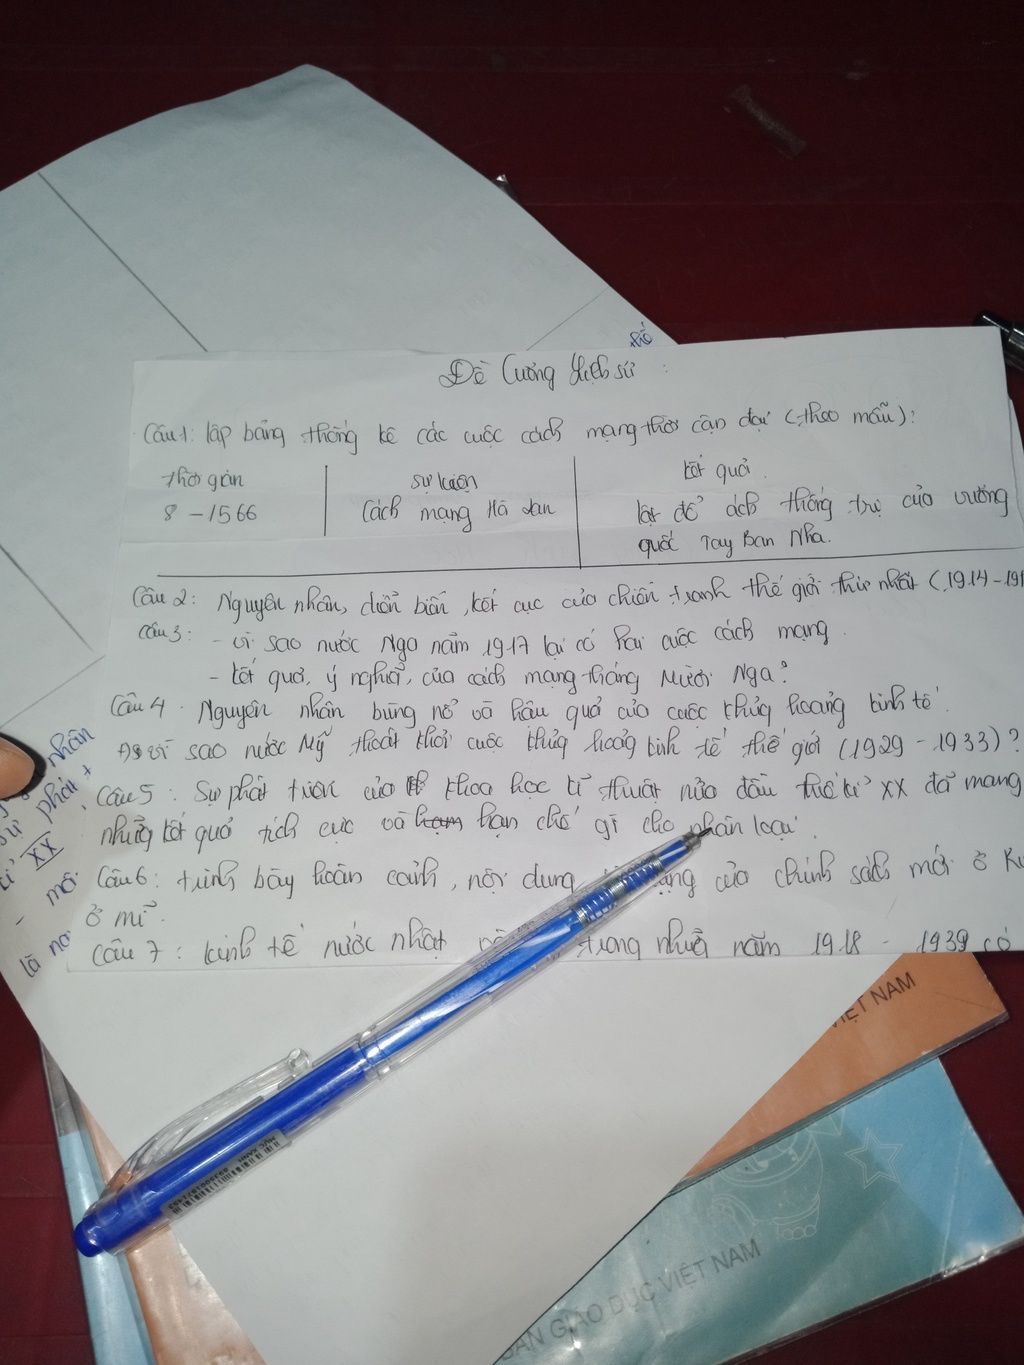 Đề Cương Lịch sử :
Câu 1: lập bảng thống kê các cuộc cách mạng thời cận đại (theo mẫu):
thời gian | sự kiện | kết quả.
8 – 1566 | Cách mạng Hà Lan | lật đổ ách thống trị của vương
quốc Tây Ban Nha.
Câu 2: Nguyên nhân, diễn biến, kết cục của chiến tranh thế giới thứ nhất (1914 - 191
Câu 3: - vì sao nước Nga năm 1917 lại có hai cuộc cách mạng.
- kết quả, ý nghĩa, của cách mạng tháng Mười Nga?
Câu 4. Nguyên nhân bùng nổ và hậu quả của cuộc khủng hoảng kinh tế.
vì sao nước Mỹ thoát khỏi cuộc khủng hoảng kinh tế thế giới (1929 - 1933)?
Câu 5: Sự phát triển của khoa học kĩ thuật nửa đầu thế kỉ XX đã mang
những kết quả tích cực và hạn chế gì cho nhân loại.
Câu 6: trình bày hoàn cảnh, nội dung, của chính sách mới ở
ở mĩ.
Câu 7: kinh tế nước nhật trong những năm 1918 - 1939 có
thế
nhân
sự phát t
kỉ XX
- mới
là
VIỆT NAM
BẢN GIÁO DỤC VIỆT NAM
MỰC XANH